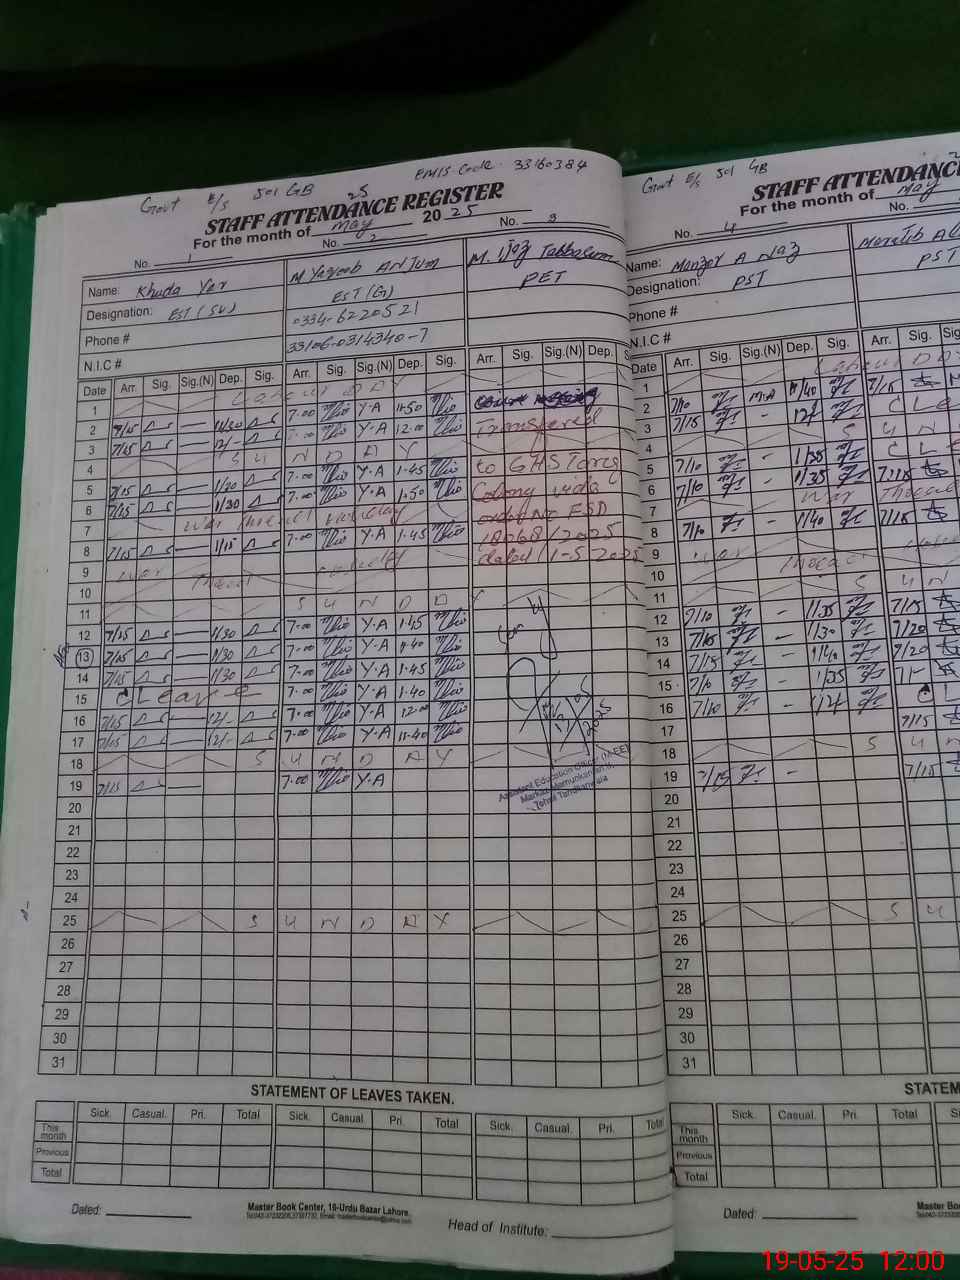 Govt E/S 501 GB EMIS Code. 33160384
25
STAFF ATTENDANCE REGISTER
For the month of May 2025
No. 1 No. 2 No. 3
Name: Khuda Yar M Yaqoob ANJum M. Ijaz Tabbasum
Designation: EST (SV) EST (G) PET
Phone # 0334-6220521
N.I.C # 33106-0314340-7
Date Arr. Sig. Sig.(N) Dep. Sig. Arr. Sig. Sig.(N) Dep. Sig. Arr. Sig. Sig.(N) Dep. S
1 Labour DAY
2 7/15 11/30 7.00 Y-A 11.50
3 7/15 12/- 7.00 Y-A 12.00 Transfered
4 S U N D A Y
5 7/15 1/30 7.00 Y-A 1.45 to GHS
6 7/15 1/30 7.00 Y-A 1.50 Colony
7 War threat Holiday order No FSD
8 7/15 1/15 7.00 Y-A 1.45 18068/2025
9 War Threat dated 1-5 2025
10
11 S U N D A Y
12 7/15 1/30 7.00 Y-A 1.45
13 7/15 1/30 7.00 Y-A 1.40
14 7/15 1/30 7.00 Y-A 1.45
15 C Leave 7.00 Y-A 1.40
16 7/15 12/- 7.00 Y-A 12.00
17 7/15 12/- 7.00 Y-A 11.40
18 S U N D A Y
19 7/15 7.00 Y-A
2025
Assistant Education Officer (M-EE)
Markaz Mamunkanjan
Tehsil Tandlianwala
20
21
22
23
24
25 S U N D A Y
26
27
28
29
30
31
STATEMENT OF LEAVES TAKEN.
Sick. Casual. Pri. Total Sick. Casual Pri. Total Sick. Casual. Pri. Total
This month
Previous
Total
Dated: Master Book Center, 10-Urdu Bazar Lahore.
Head of Institute:
Govt E/S 501 GB
STAFF ATTENDANC
For the month of May
No. 4
Name: Manzor A Naz Maratib Al
Designation: PST PST
Phone #
N.I.C #
Date Arr. Sig. Sig.(N) Dep. Sig. Arr. Sig.
1 Labour DA
2 7/10 11/40 7/15
3 7/15 - 12/- C L e
4 S U N
5 7/10 - 1/35 C L e
6 7/10 - 1/35 7/15
7 War Threat
8 7/10 - 1/40 7/15
9 War Threat
10
11 S U N
12 7/10 - 1/35 7/15
13 7/15 - 1/30 7/20
14 7/15 - 1/40 7/20
15 7/10 - 1/35
16 7/10 - 12/- C L
17 7/15
18 S U N
19 7/15 - 7/15
20
21
22
23
24
25 S U
26
27
28
29
30
31
STATEM
Sick. Casual. Pri. Total
This month
Previous
Total
Dated: Master Book
19-05-25 12:00